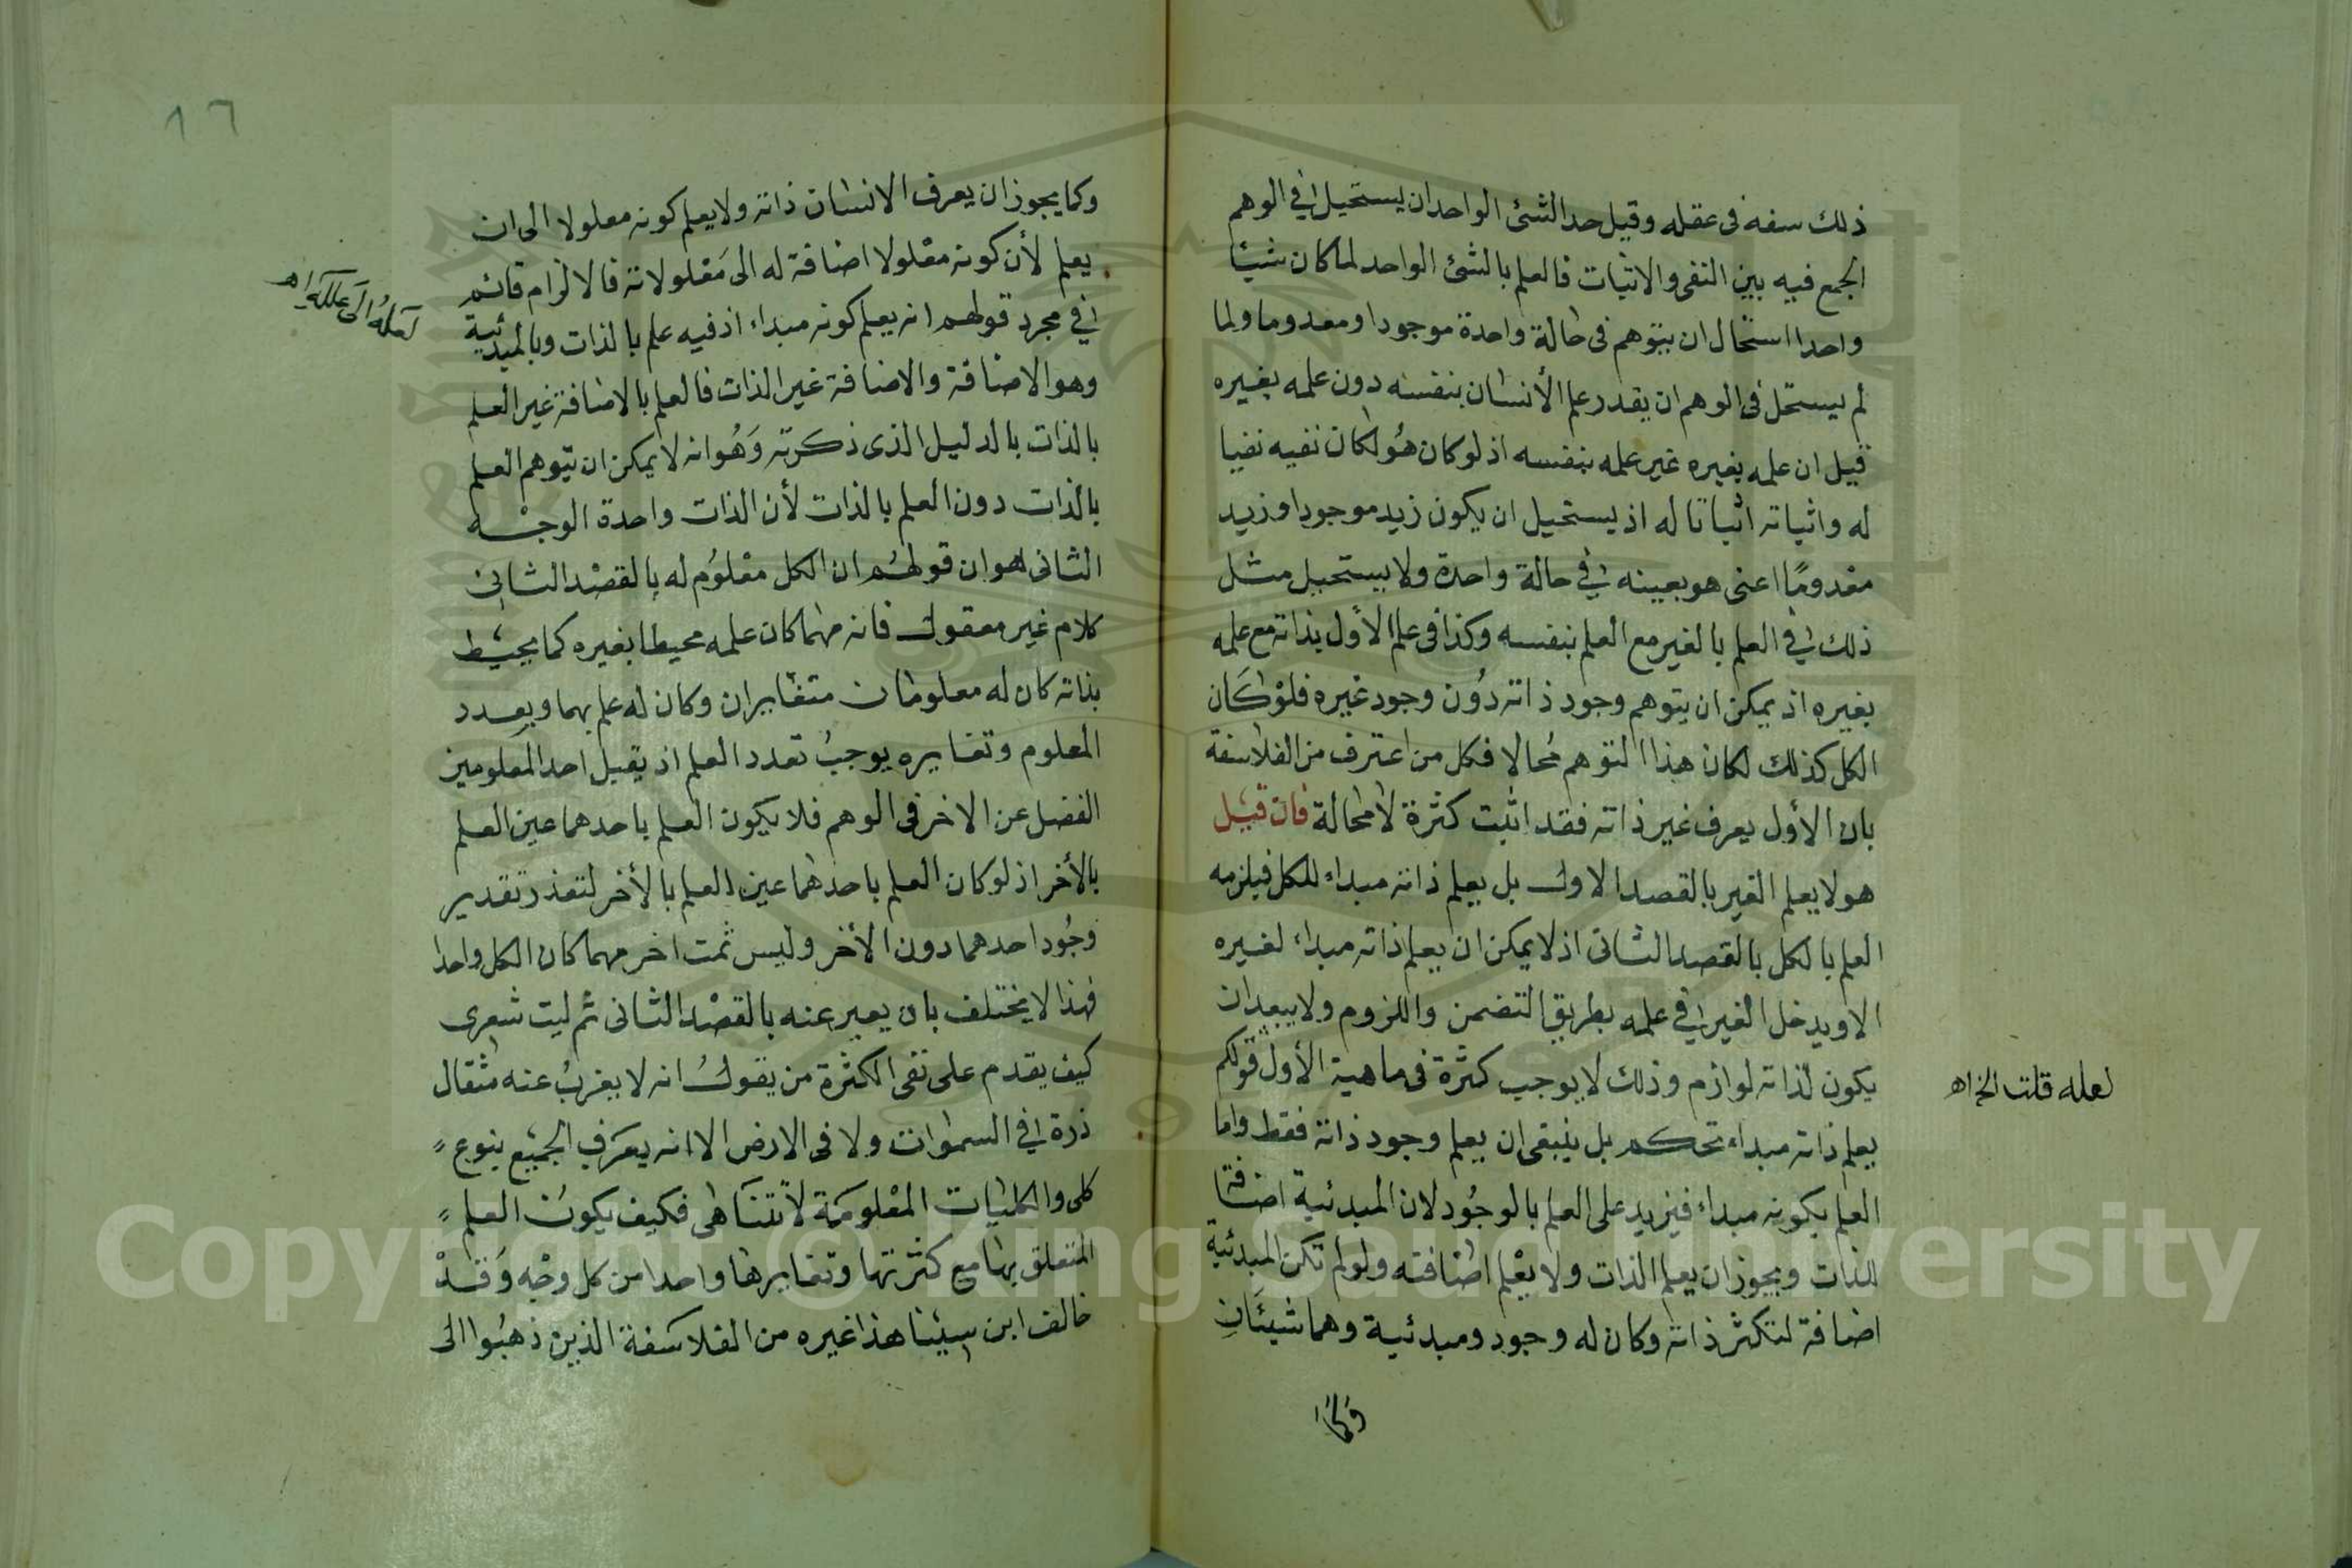 ذلك سفه فى عقله وقيل حد الشئ الواحد ان يستحيل فى الوهم
الجمع فيه بين النفى والاثبات فالعلم بالشئ الواحد لما كان شيئا
واحدا استحال ان يتوهم فى حالة واحدة موجودا ومعدوما ولما
لم يستحل فى الوهم ان يقدر علم الأنسان بنفسه دون علمه بغيره
قيل ان علمه بغيره غير علمه بنفسه اذ لو كان هو لكان نفيه نفيا
له واثباته اثباتا له اذ يستحيل ان يكون زيد موجودا وزيد
معدومًا اعنى هو بعينه فى حالة واحدة ولا يستحيل مثل
ذلك فى العلم بالغير مع العلم بنفسه وكذا فى علم الأول بذاته مع علمه
بغيره اذ يمكن ان يتوهم وجود ذاته دون وجود غيره فلو كان
الكل كذلك لكان هذا التوهم محالا فكل من اعترف من الفلاسفة
بان الأول يعرف غير ذاته فقد اثبت كثرة لا محالة فان قيل
هو لا يعلم الغير بالقصد الاول بل يعلم ذاته مبداء للكل فيلزمه
العلم بالكل بالقصد الثانى اذ لا يمكن ان يعلم ذاته مبداء لغيره
الا ويدخل الغير فى علمه بطريق التضمن واللزوم ولا يبعد ان
يكون لذاته لوازم وذلك لا يوجب كثرة فى ماهية الأول قولكم
لعله قلت الخ اهـ
يعلم ذاته مبداء تحكم بل ينبغى ان يعلم وجود ذاته فقط واما
العلم بكونه مبداء فيزيد على العلم بالوجود لان المبدئية اضافة
للذات ويجوز ان يعلم الذات ولا يعلم اضافته ولو لم تكن المبدئية
اضافة لتكثر ذاته وكان له وجود ومبدئية وهما شيئان
وكما
١٦
وكما يجوز ان يعرف الانسان ذاته ولا يعلم كونه معلولا الى ان
يعلم لأن كونه معلولا اضافة له الى معلولاته فالالزام قائم
لعله الى علله اهـ
فى مجرد قولهم انه يعلم كونه مبداء اذ فيه علم بالذات وبالمبدئية
وهو الاضافة والاضافة غير الذات فالعلم بالاضافة غير العلم
بالذات بالدليل الذى ذكرته وهو انه لا يمكن ان يتوهم العلم
بالذات دون العلم بالذات لأن الذات واحدة الوجه
الثانى هو ان قولهم ان الكل معلوم له بالقصد الثانى
كلام غير معقول فانه مهما كان علمه محيطا بغيره كما يحيط
بذاته كان له معلومان متغايران وكان له علم بهما وبعدد
المعلوم وتغايره يوجب تعدد العلم اذ يقبل احد المعلومين
الفضل عن الاخر فى الوهم فلا يكون العلم باحدهما عين العلم
بالأخر اذ لو كان العلم باحدهما عين العلم بالأخر لتعذر تقدير
وجود احدهما دون الأخر وليس ثمت اخر مهما كان الكل واحدا
فهذا لا يختلف بان يعبر عنه بالقصد الثانى ثم ليت شعرى
كيف يقدم على نفى الكثرة من يقول انه لا يعزب عنه مثقال
ذرة فى السموات ولا فى الارض الا انه يعرف الجميع بنوع
كلى والكليات المعلومة لا تتناهى فكيف يكون العلم
المتعلق بها مع كثرتها وتغايرها واحدا من كل وجه وقد
خالف ابن سينا هذا غيره من الفلاسفة الذين ذهبوا الى
Copyright © King Saud University